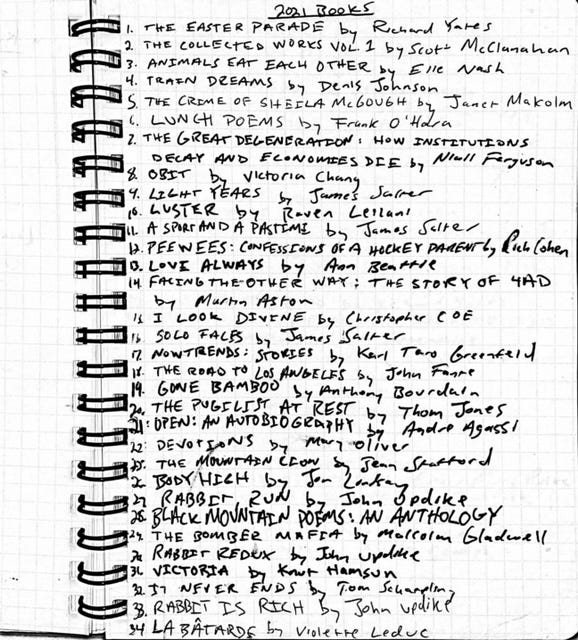 2021 BOOKS
1. THE EASTER PARADE by Richard Yates
2. THE COLLECTED WORKS VOL. 1 by Scott McClanahan
3. ANIMALS EAT EACH OTHER by Elle Nash
4. TRAIN DREAMS by Denis Johnson
5. THE CRIME OF SHEILA McGOUGH by Janet Malcolm
6. LUNCH POEMS by Frank O'Hara
7. THE GREAT DEGENERATION: HOW INSTITUTIONS
DECAY AND ECONOMIES DIE by Niall Ferguson
8. OBIT by Victoria Chang
9. LIGHT YEARS by James Salter
10. LUSTER by Raven Leilani
11. A SPORT AND A PASTIME by James Salter
12. PEEWEES: CONFESSIONS OF A HOCKEY PARENT by Rich Cohen
13. LOVE ALWAYS by Ann Beattie
14. FACING THE OTHER WAY: THE STORY OF 4AD
by Martin Aston
15. I LOOK DIVINE by Christopher COE
16. SOLO FACES by James Salter
17. NOWTRENDS: STORIES by Karl Taro Greenfeld
18. THE ROAD TO LOS ANGELES by John Fante
19. GONE BAMBOO by Anthony Bourdain
20. THE PUGILIST AT REST by Thom Jones
21. OPEN: AN AUTOBIOGRAPHY by Andre Agassi
22. DEVOTIONS by Mary Oliver
25. THE MOUNTAIN LION by Jean Stafford
26. BODY HIGH by Jon Lindsey
27. RABBIT, RUN by John Updike
28. BLACK MOUNTAIN POEMS: AN ANTHOLOGY
29. THE BOMBER MAFIA by Malcolm Gladwell
30. RABBIT REDUX by John Updike
31. VICTORIA by Knut Hamsun
32. IT NEVER ENDS by Tom Scharpling
33. RABBIT IS RICH by John Updike
34 LA BÂTARDE by Violette Leduc